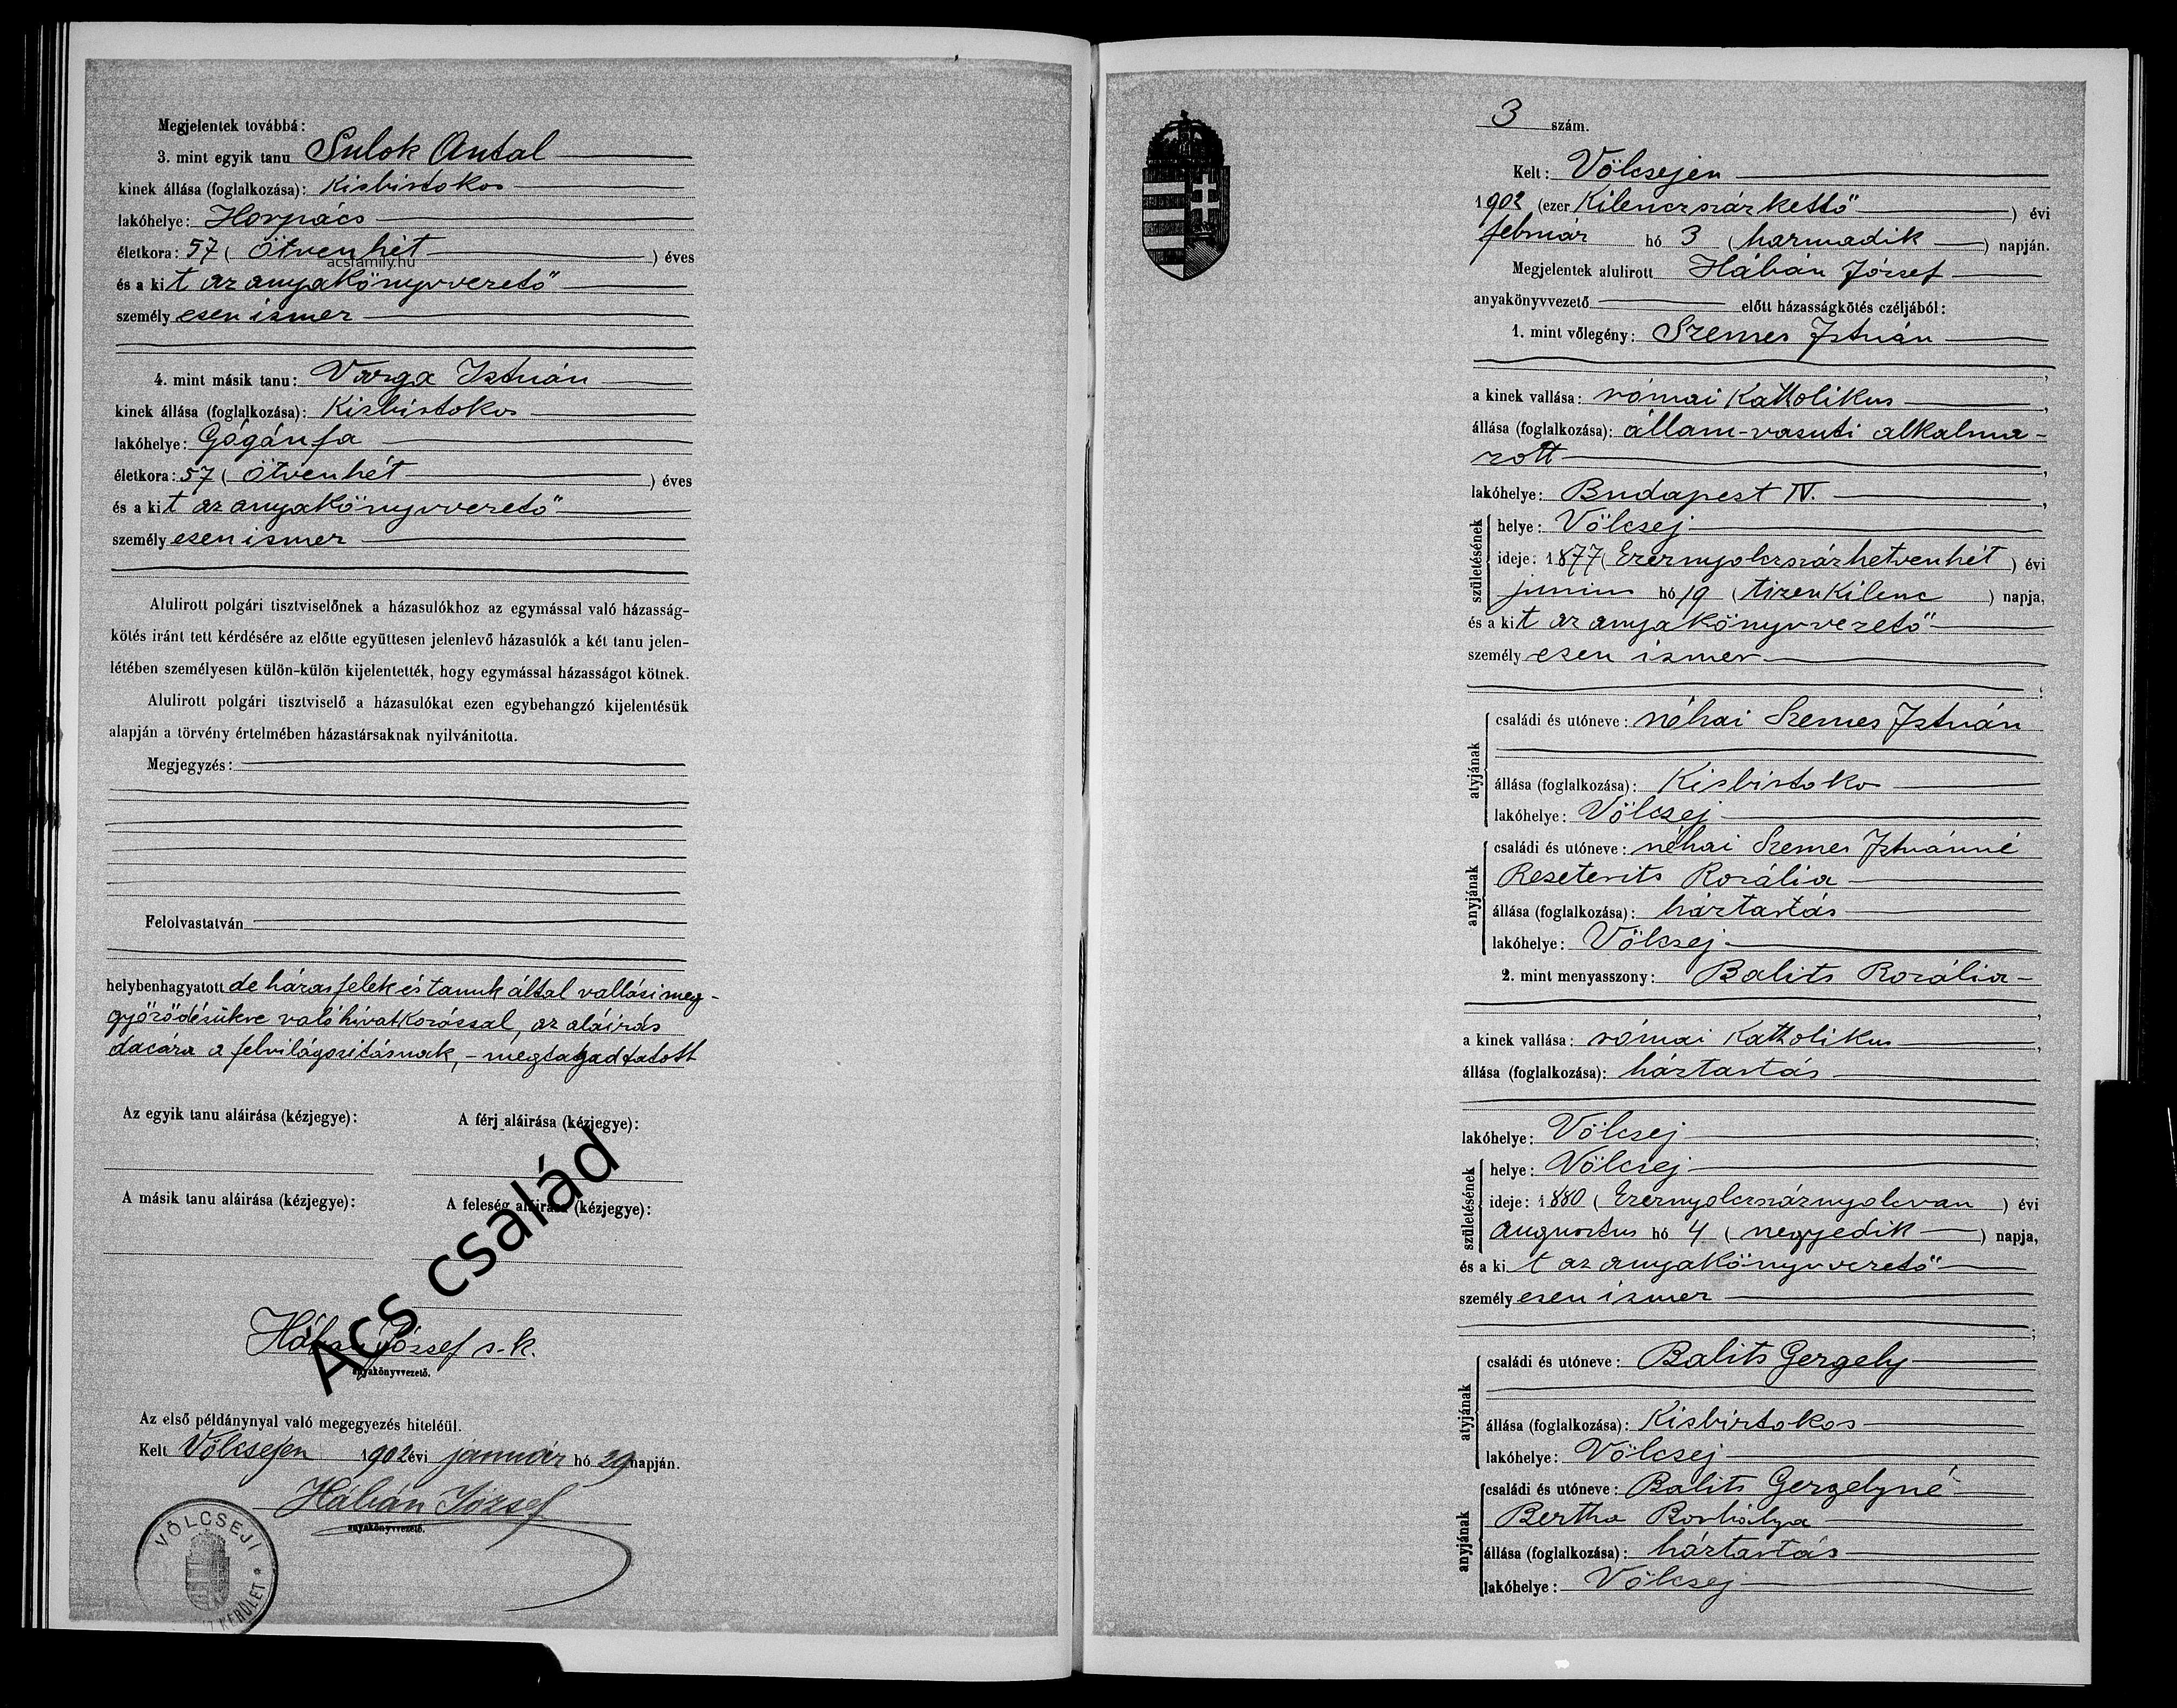 Megjelentek továbbá:
3. mint egyik tanu Sulok Antal
kinek állása (foglalkozása): Kisbirtokos
lakóhelye: Horpács
életkora: 57 ( Ötvenhét ) éves
acsfamily.hu
és a kit az anyakönyvvezető
személyesen ismer
4. mint másik tanu: Varga István
kinek állása (foglalkozása): Kisbirtokos
lakóhelye: Gógánfa
életkora: 57 ( Ötvenhét ) éves
és a kit az anyakönyvvezető
személyesen ismer
Alulirott polgári tisztviselőnek a házasulókhoz az egymással való házasság-
kötés iránt tett kérdésére az előtte együttesen jelenlevő házasulók a két tanu jelen-
létében személyesen külön-külön kijelentették, hogy egymással házasságot kötnek.
Alulirott polgári tisztviselő a házasulókat ezen egybehangzó kijelentésük
alapján a törvény értelmében házastársaknak nyilvánitotta.
Megjegyzés:
Felolvastatván
helybenhagyatott de házasfelek és tanuk által vallási meg-
győződésükre való hivatkozással, az aláirás
dacára a felvilágositásnak, - megtagadtatott
Az egyik tanu aláirása (kézjegye):
A férj aláirása (kézjegye):
A másik tanu aláirása (kézjegye):
A feleség aláirása (kézjegye):
Ács család
Hábán József s.k.
anyakönyvvezető.
Az első példánynyal való megegyezés hiteléül.
Kelt Völcsejen 1902 évi január hó 29 napján.
Hábán József
anyakönyvvezető.
VÖLCSEJI
KERÜLET *
3 szám.
Kelt: Völcsejen
1902 (ezer Kilenczszázkettő ) évi
február hó 3 ( harmadik ) napján.
Megjelentek alulirott Hábán József
anyakönyvvezető előtt házasságkötés czéljából:
1. mint vőlegény: Szemes István
a kinek vallása: római Katholikus,
állása (foglalkozása): állam-vasuti alkalma-
zott,
lakóhelye: Budapest IV.,
születésének
helye: Völcsej
ideje: 1877 ( Ezernyolczszázhetvenhét ) évi
junius hó 19 ( tizenkilenc ) napja,
és a kit az anyakönyvvezető
személyesen ismer
;
atyjának
családi és utóneve: néhai Szemes István
állása (foglalkozása): Kisbirtokos
lakóhelye: Völcsej
anyjának
családi és utóneve: néhai Szemes Istvánné
Reseterits Rozália
állása (foglalkozása): háztartás
lakóhelye: Völcsej
2. mint menyasszony: Balits Rozália
,
a kinek vallása: római Katholikus,
állása (foglalkozása): háztartás
lakóhelye: Völcsej;
születésének
helye: Völcsej
ideje: 1880 ( Ezernyolczszáznyolcvan ) évi
augusztus hó 4 ( negyedik ) napja,
és a kit az anyakönyvvezető
személyesen ismer
;
atyjának
családi és utóneve: Balits Gergely
állása (foglalkozása): Kisbirtokos
lakóhelye: Völcsej
anyjának
családi és utóneve: Balits Gergelyné
Bertha Borbálya
állása (foglalkozása): háztartás
lakóhelye: Völcsej